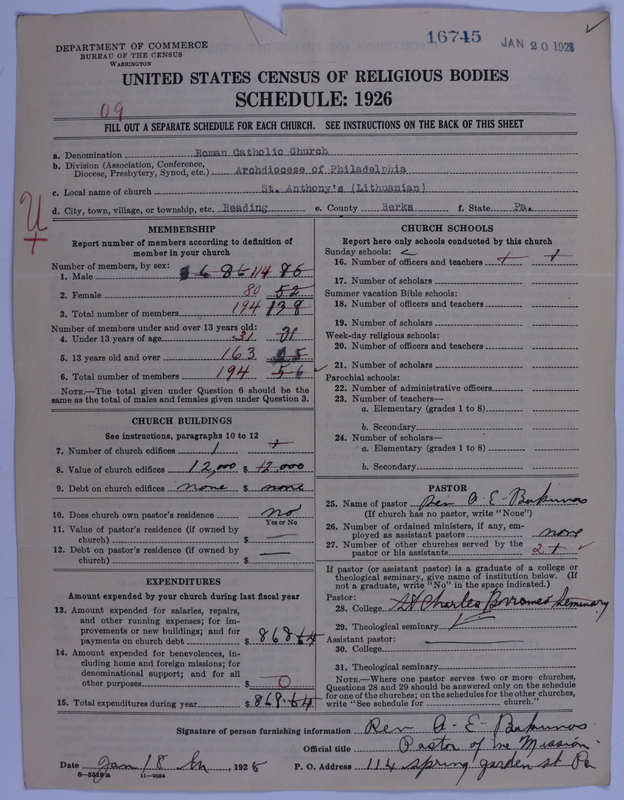 16745
JAN 20 1928
DEPARTMENT OF COMMERCE
BUREAU OF THE CENSUS
WASHINGTON
UNITED STATES CENSUS OF RELIGIOUS BODIES
SCHEDULE: 1926
09
FILL OUT A SEPARATE SCHEDULE FOR EACH CHURCH. SEE INSTRUCTIONS ON THE BACK OF THIS SHEET
a. Denomination Roman Catholic Church
b. Division (Association, Conference, Diocese, Presbytery, Synod, etc.) Archdiocese of Philadelphia
c. Local name of church St. Anthony's (Lithuanian)
d. City, town, village, or township, etc. Reading e. County Berks f. State Pa.
U
MEMBERSHIP
Report number of members according to definition of
member in your church
Number of members, by sex:
1. Male 114 86
2. Female 80 52
3. Total number of members 194 138
Number of members under and over 13 years old:
4. Under 13 years of age 31 31
5. 13 years old and over 163
6. Total number of members 194 56
NOTE.—The total given under Question 6 should be the
same as the total of males and females given under Question 3.
CHURCH BUILDINGS
See instructions, paragraphs 10 to 12
7. Number of church edifices 1
8. Value of church edifices 12,000 $ 12,000
9. Debt on church edifices none $ none
10. Does church own pastor's residence no
Yes or No
11. Value of pastor's residence (if owned by
church) $ —
12. Debt on pastor's residence (if owned by
church) $ —
EXPENDITURES
Amount expended by your church during last fiscal year
13. Amount expended for salaries, repairs,
and other running expenses; for im-
provements or new buildings; and for
payments on church debt $ 868 64
14. Amount expended for benevolences, in-
cluding home and foreign missions; for
denominational support; and for all
other purposes $ 0
15. Total expenditures during year $ 868.64
CHURCH SCHOOLS
Report here only schools conducted by this church
Sunday schools:
16. Number of officers and teachers
17. Number of scholars
Summer vacation Bible schools:
18. Number of officers and teachers
19. Number of scholars
Week-day religious schools:
20. Number of officers and teachers
21. Number of scholars
Parochial schools:
22. Number of administrative officers
23. Number of teachers—
a. Elementary (grades 1 to 8)
b. Secondary
24. Number of scholars—
a. Elementary (grades 1 to 8)
b. Secondary
PASTOR
25. Name of pastor Rev A. E.
(If church has no pastor, write "None")
26. Number of ordained ministers, if any, em-
ployed as assistant pastors none
27. Number of other churches served by the
pastor or his assistants 2
If pastor (or assistant pastor) is a graduate of a college or
theological seminary, give name of institution below. (If
not a graduate, write "No" in the space indicated.)
Pastor:
28. College St Charles Borromeo Seminary
29. Theological seminary
Assistant pastor:
30. College
31. Theological seminary
NOTE.—Where one pastor serves two or more churches,
Questions 28 and 29 should be answered only on the schedule
for one of the churches; on the schedules for the other churches,
write "See schedule for church."
Signature of person furnishing information Rev A. E.
Official title Pastor of the Mission
Date Jan 18 th, 1928 P. O. Address 114 spring garden st Pa
8—5518a 11—9224